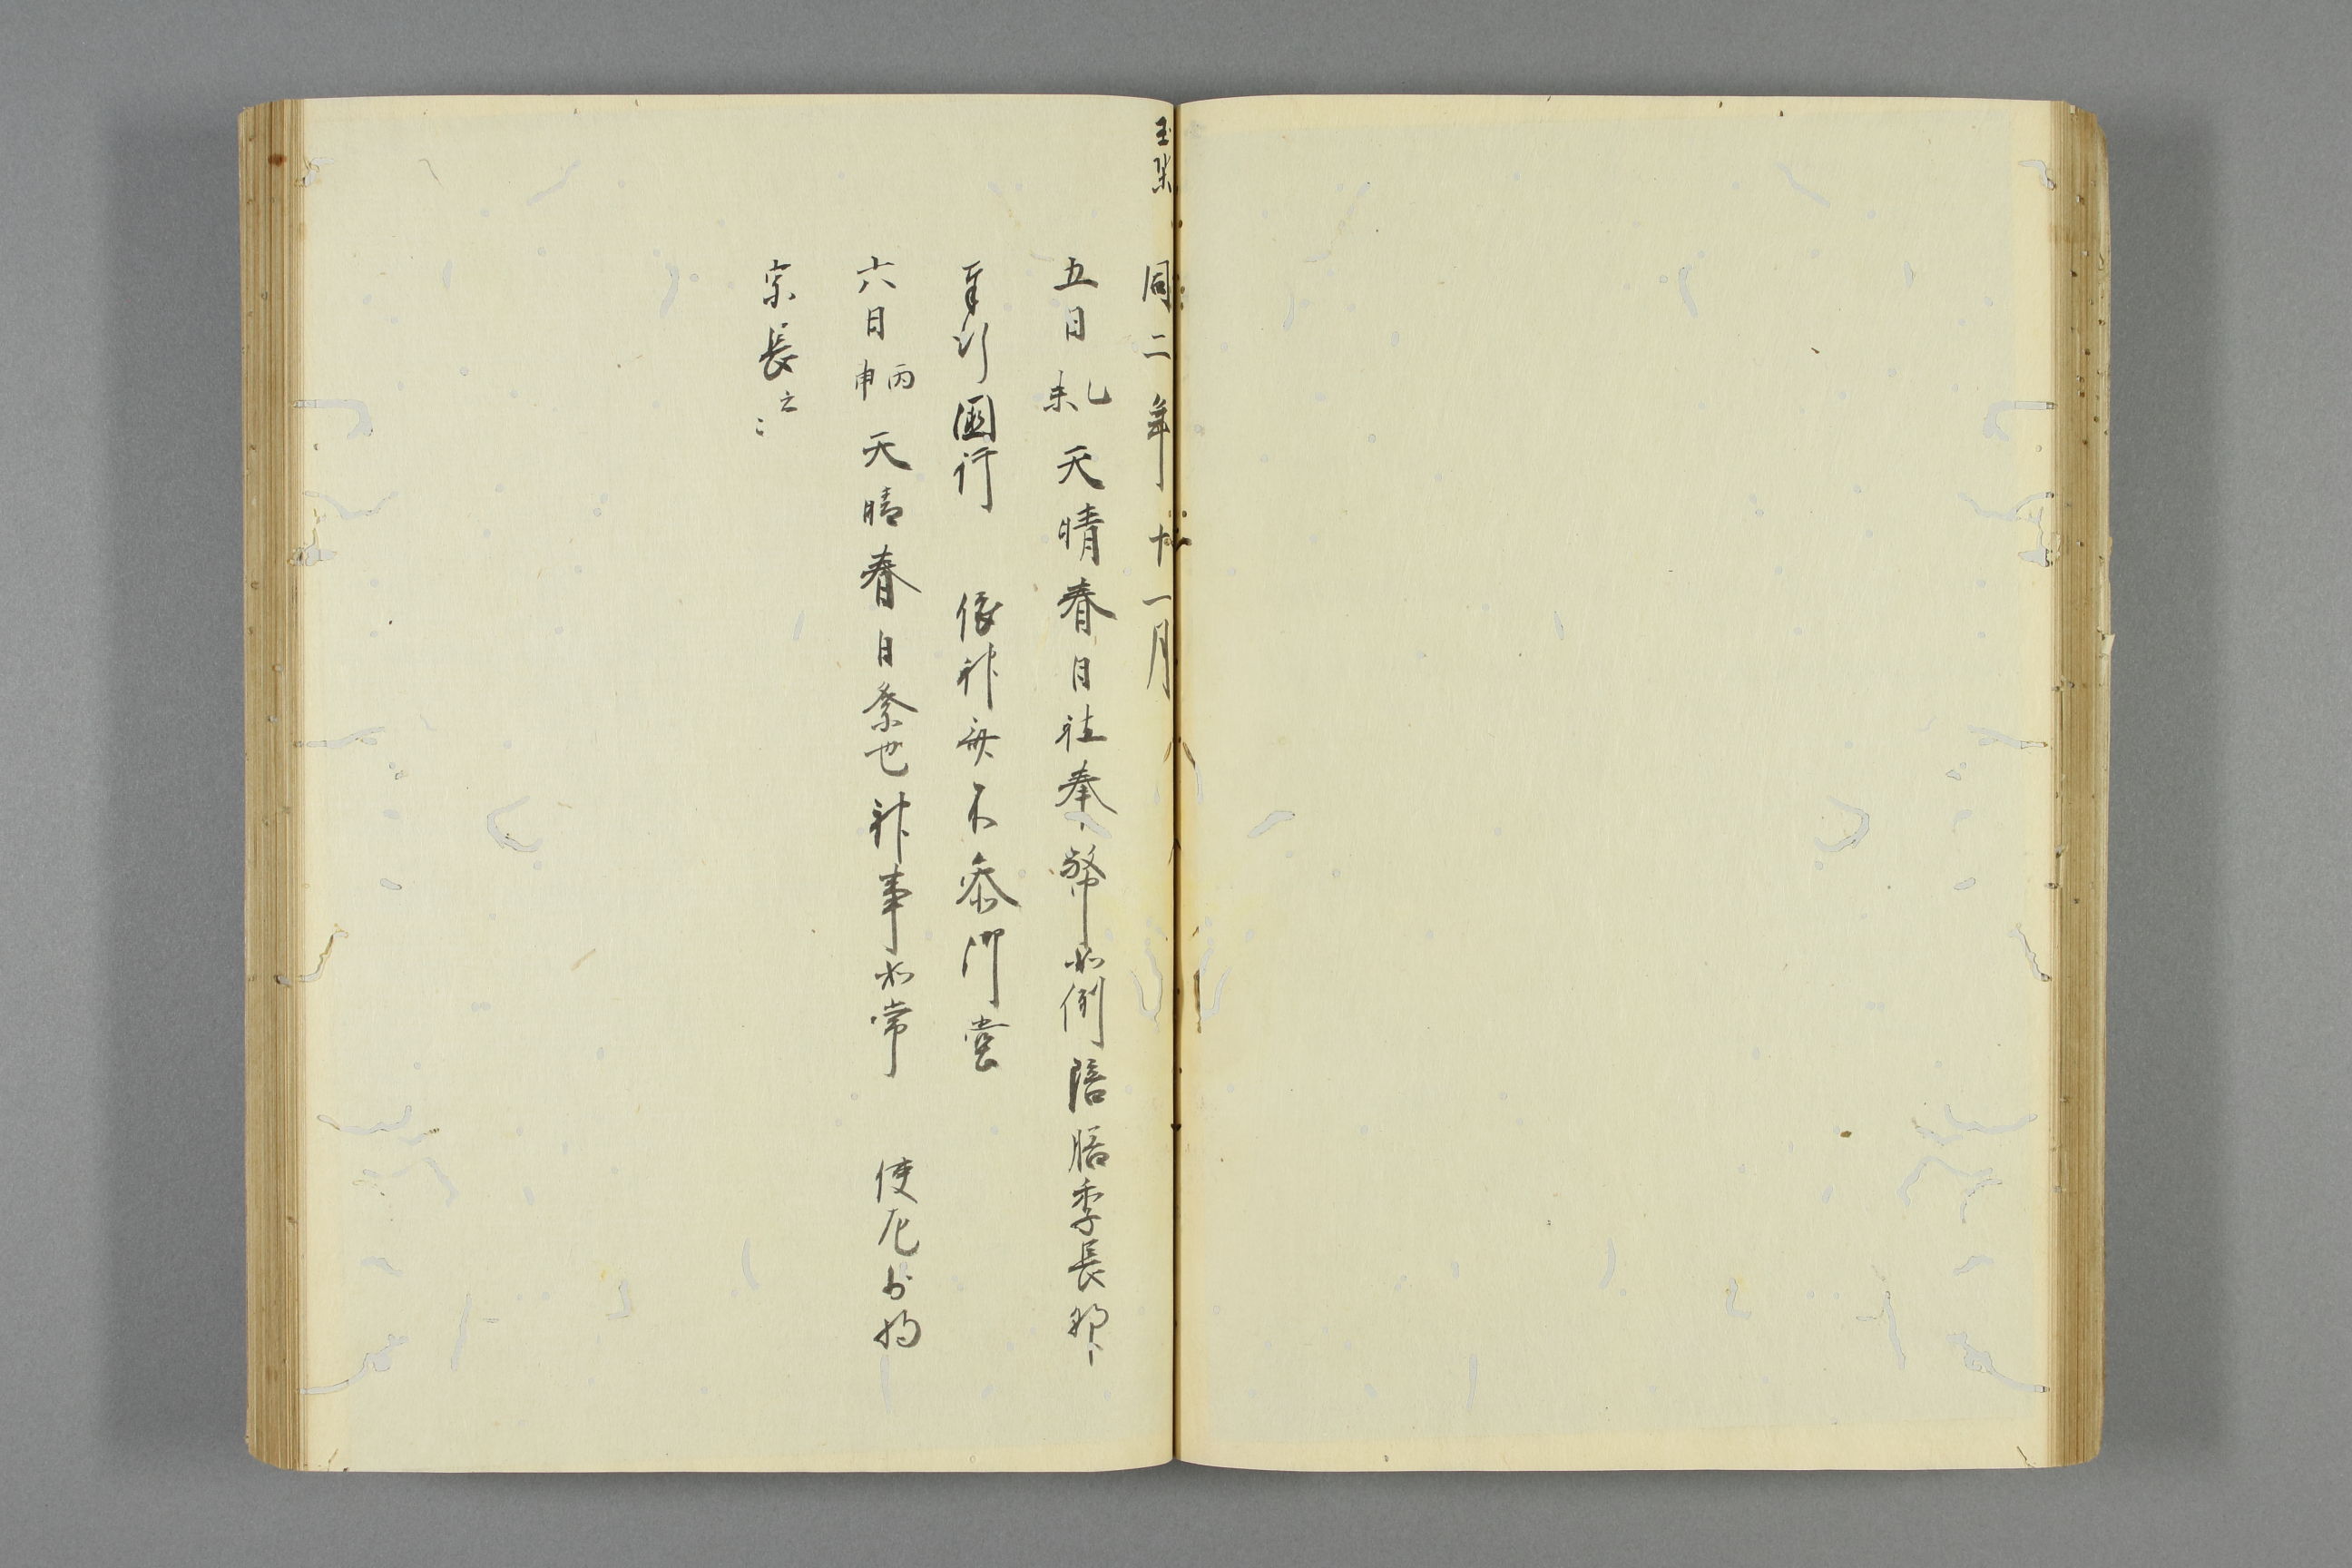 玉葉
同二年十一月
五日乙未天晴春日社奉幣如例陪膳季長朝臣
奉行國行 依神斎不参御堂
六日丙申天晴春日祭也神事如常 使左少将
宗長云々